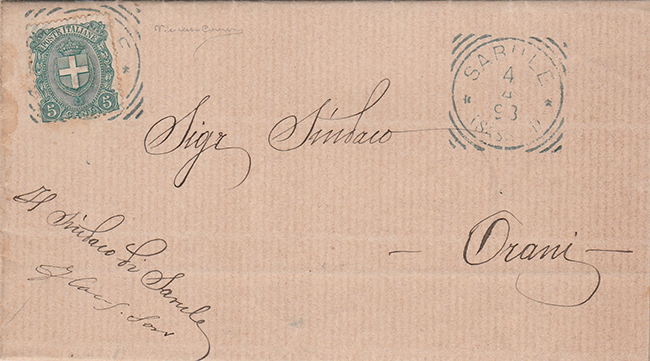 POSTE ITALIANE
5 CENT. 5
SARULE
4
93
Sigr Sindaco
Orani
Il Sindaco di Sarule